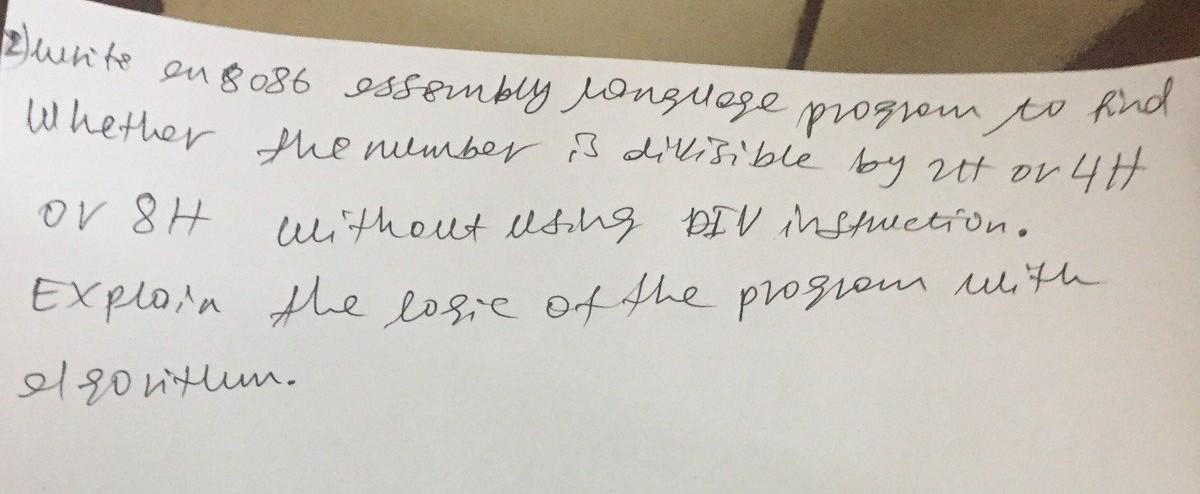 2) write an 8086 assembly language program to find
Whether the number is divisible by 2H or 4H
or 8H without using DIV instruction.
Explain the logic of the program with
algorithm.